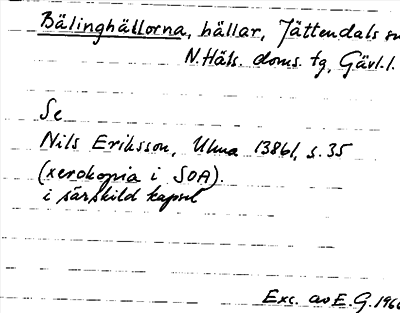 Bälinghällorna, hällar, Jättendals sn
N. Häls. doms. tg, Gävl. l.
Se
Nils Eriksson, Ulma 13861, s. 35
(xerokopia i SOA).
i särskild kapsel
Exc. av E. G. 1966